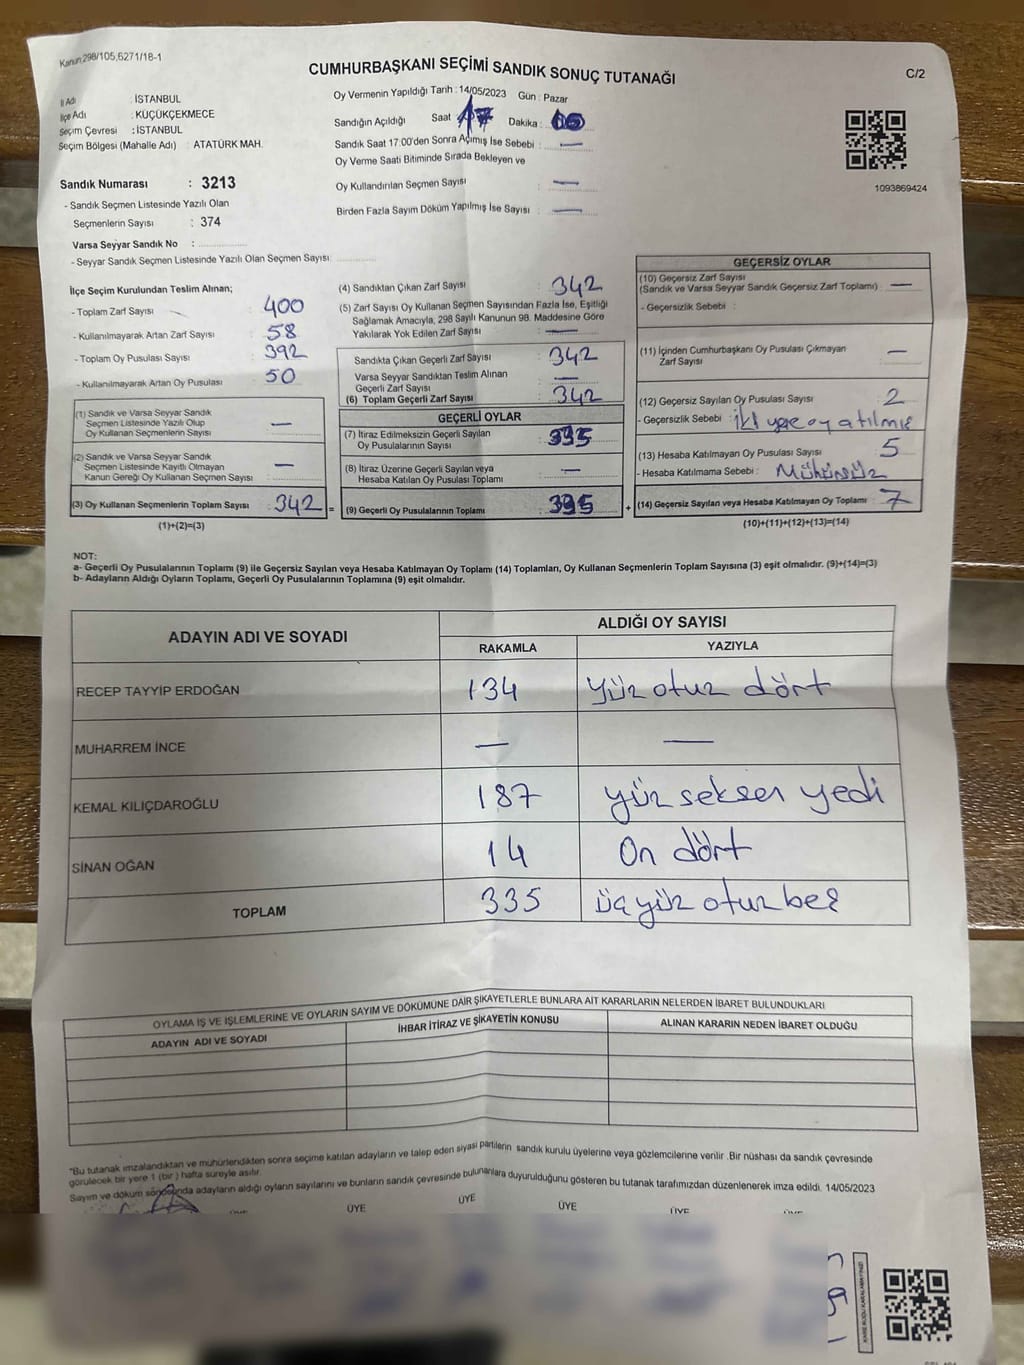 Kanun 298/105,6271/18-1
CUMHURBAŞKANI SEÇİMİ SANDIK SONUÇ TUTANAĞI
C/2
İl Adı : İSTANBUL
İlçe Adı : KÜÇÜKÇEKMECE
Seçim Çevresi : İSTANBUL
Seçim Bölgesi (Mahalle Adı) : ATATÜRK MAH.
Sandık Numarası : 3213
- Sandık Seçmen Listesinde Yazılı Olan
Seçmenlerin Sayısı : 374
Varsa Seyyar Sandık No :
- Seyyar Sandık Seçmen Listesinde Yazılı Olan Seçmen Sayısı:
Oy Vermenin Yapıldığı Tarih : 14/05/2023 Gün : Pazar
Sandığın Açıldığı Saat 17 Dakika :
Sandık Saat 17:00'den Sonra Açılmış İse Sebebi : —
Oy Verme Saati Bitiminde Sırada Bekleyen ve
Oy Kullandırılan Seçmen Sayısı : —
Birden Fazla Sayım Döküm Yapılmış İse Sayısı : —
1093869424
İlçe Seçim Kurulundan Teslim Alınan;
- Toplam Zarf Sayısı : 400
- Kullanılmayarak Artan Zarf Sayısı : 58
- Toplam Oy Pusulası Sayısı : 392
- Kullanılmayarak Artan Oy Pusulası : 50
(1) Sandık ve Varsa Seyyar Sandık
Seçmen Listesinde Yazılı Olup
Oy Kullanan Seçmenlerin Sayısı : —
(2) Sandık ve Varsa Seyyar Sandık
Seçmen Listesinde Kayıtlı Olmayan
Kanun Gereği Oy Kullanan Seçmen Sayısı : —
(3) Oy Kullanan Seçmenlerin Toplam Sayısı : 342 =
(1)+(2)=(3)
(4) Sandıktan Çıkan Zarf Sayısı : 342
(5) Zarf Sayısı Oy Kullanan Seçmen Sayısından Fazla İse, Eşitliği
Sağlamak Amacıyla, 298 Sayılı Kanunun 98. Maddesine Göre
Yakılarak Yok Edilen Zarf Sayısı : —
Sandıkta Çıkan Geçerli Zarf Sayısı : 342
Varsa Seyyar Sandıktan Teslim Alınan
Geçerli Zarf Sayısı : —
(6) Toplam Geçerli Zarf Sayısı : 342
GEÇERLİ OYLAR
(7) İtiraz Edilmeksizin Geçerli Sayılan
Oy Pusulalarının Sayısı : 335
(8) İtiraz Üzerine Geçerli Sayılan veya
Hesaba Katılan Oy Pusulası Toplamı : —
(9) Geçerli Oy Pusulalarının Toplamı : 335 +
GEÇERSİZ OYLAR
(10) Geçersiz Zarf Sayısı
(Sandık ve Varsa Seyyar Sandık Geçersiz Zarf Toplamı) : —
- Geçersizlik Sebebi :
(11) İçinden Cumhurbaşkanı Oy Pusulası Çıkmayan
Zarf Sayısı : —
(12) Geçersiz Sayılan Oy Pusulası Sayısı : 2
- Geçersizlik Sebebi : iki yere oy atılmış
(13) Hesaba Katılmayan Oy Pusulası Sayısı : 5
- Hesaba Katılmama Sebebi : Mühürsüz
(14) Geçersiz Sayılan veya Hesaba Katılmayan Oy Toplamı : 7
(10)+(11)+(12)+(13)=(14)
NOT:
a- Geçerli Oy Pusulalarının Toplamı (9) ile Geçersiz Sayılan veya Hesaba Katılmayan Oy Toplamı (14) Toplamları, Oy Kullanan Seçmenlerin Toplam Sayısına (3) eşit olmalıdır. (9)+(14)=(3)
b- Adayların Aldığı Oyların Toplamı, Geçerli Oy Pusulalarının Toplamına (9) eşit olmalıdır.
ADAYIN ADI VE SOYADI
ALDIĞI OY SAYISI
RAKAMLA YAZIYLA
RECEP TAYYİP ERDOĞAN 134 yüz otuz dört
MUHARREM İNCE — —
KEMAL KILIÇDAROĞLU 187 yüz seksen yedi
SİNAN OĞAN 14 On dört
TOPLAM 335 üç yüz otuz beş
OYLAMA İŞ VE İŞLEMLERİNE VE OYLARIN SAYIM VE DÖKÜMÜNE DAİR ŞİKAYETLERLE BUNLARA AİT KARARLARIN NELERDEN İBARET BULUNDUKLARI
ADAYIN ADI VE SOYADI İHBAR İTİRAZ VE ŞİKAYETİN KONUSU ALINAN KARARIN NEDEN İBARET OLDUĞU
"Bu tutanak imzalandıktan ve mühürlendikten sonra seçime katılan adayların ve talep eden siyasi partilerin sandık kurulu üyelerine veya gözlemcilerine verilir. Bir nüshası da sandık çevresinde
görülecek bir yere 1 (bir) hafta süreyle asılır.
Sayım ve döküm sonosunda adayların aldığı oyların sayılarını ve bunların sandık çevresinde bulunanlara duyurulduğunu gösteren bu tutanak tarafımızdan düzenlenerek imza edildi. 14/05/2023
ÜYE ÜYE ÜYE ÜYE
KARE KODU KARALAMAYINIZ!